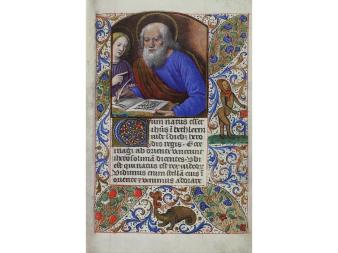 Cum natus esset
ihūs ī bethleem
iude ī dieb3 hero
dis regis. Ecce
magi ab oriente venerunt
iherosolimā dicentes. Vbi
est qui natus est rex iudeoꝝ
Vidimus enim stellā eius ī
oriente et venimus adorare